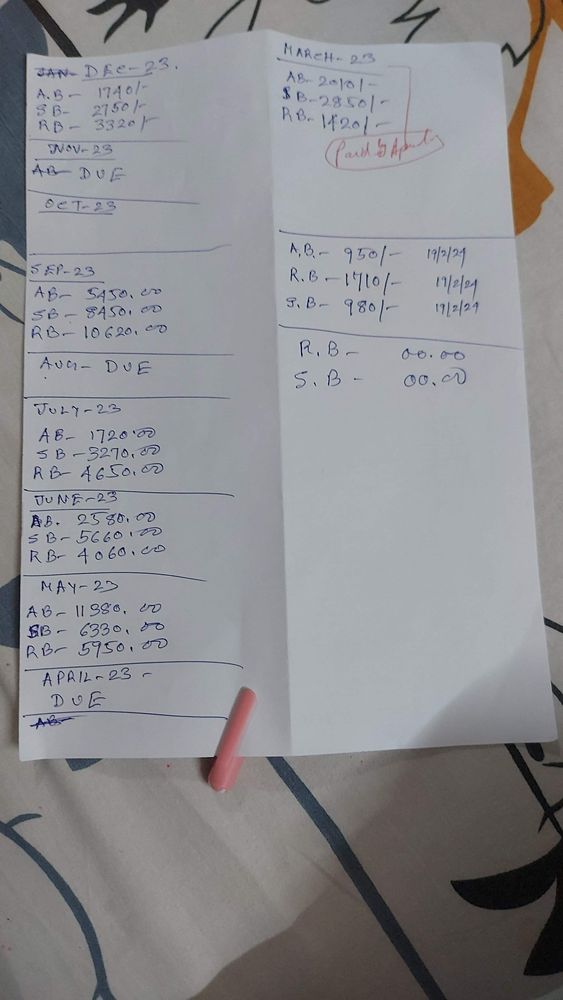 DEC-23.
A.B - 1740/-
SB- 2750/-
RB - 3320/-
NOV-23
AB- DUE
OCT-23
SEP-23
AB- 5450.00
SB- 8450.00
RB- 10620.00
AUG- DUE
JULY-23
AB- 1720.00
SB-3270.00
RB- 4650.00
JUNE-23
AB. 2580.00
SB-5660.00
RB- 4060.00
MAY-23
AB- 11380.00
SB- 6330.00
RB- 5950.00
APRIL-23 -
DUE
AB-
MARCH-23
AB-2010/-
SB-2850/-
RB-1420/-
Paid
A.B.- 950/- 17/2/24
R.B-1710/- 17/2/24
S.B- 980/- 17/2/24
R.B- 00.00
S.B- 00.00